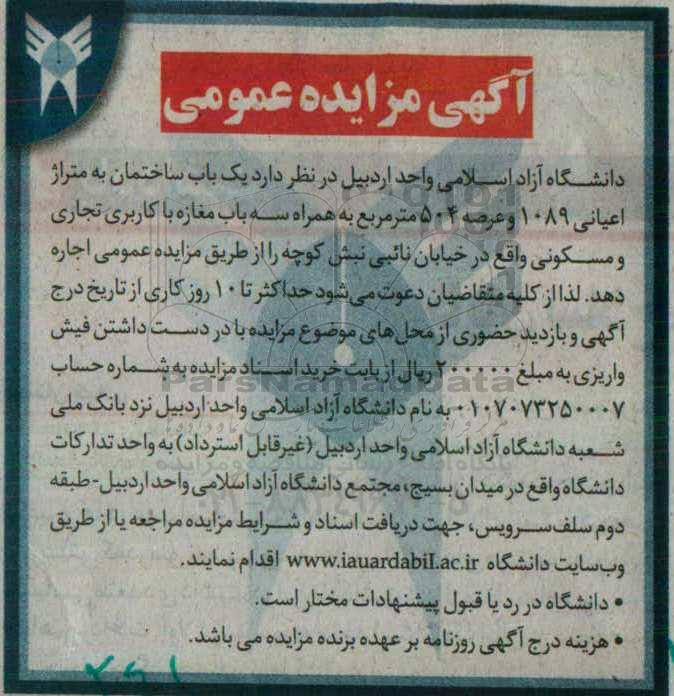 آگهی مزایده عمومی
دانشگاه آزاد اسلامی واحد اردبیل در نظر دارد یک باب ساختمان به متراژ
اعیانی ۱۰۸۹ و عرصه ۵۰۴ مترمربع به همراه سه باب مغازه با کاربری تجاری
و مسکونی واقع در خیابان نائبی نبش کوچه را از طریق مزایده عمومی اجاره
دهد. لذا از کلیه متقاضیان دعوت می‌شود حداکثر تا ۱۰ روز کاری از تاریخ درج
آگهی و بازدید حضوری از محل‌های موضوع مزایده با در دست داشتن فیش
واریزی به مبلغ ۲۰۰۰۰۰۰ ریال از بابت خرید اسناد مزایده به شماره حساب
۰۱۰۷۰۷۳۲۵۰۰۰۷ به نام دانشگاه آزاد اسلامی واحد اردبیل نزد بانک ملی
شعبه دانشگاه آزاد اسلامی واحد اردبیل (غیرقابل استرداد) به واحد تدارکات
دانشگاه واقع در میدان بسیج، مجتمع دانشگاه آزاد اسلامی واحد اردبیل- طبقه
دوم سلف سرویس، جهت دریافت اسناد و شرایط مزایده مراجعه یا از طریق
وب‌سایت دانشگاه www.iauardabil.ac.ir اقدام نمایند.
• دانشگاه در رد یا قبول پیشنهادات مختار است.
• هزینه درج آگهی روزنامه بر عهده برنده مزایده می باشد.
ParsNamadData